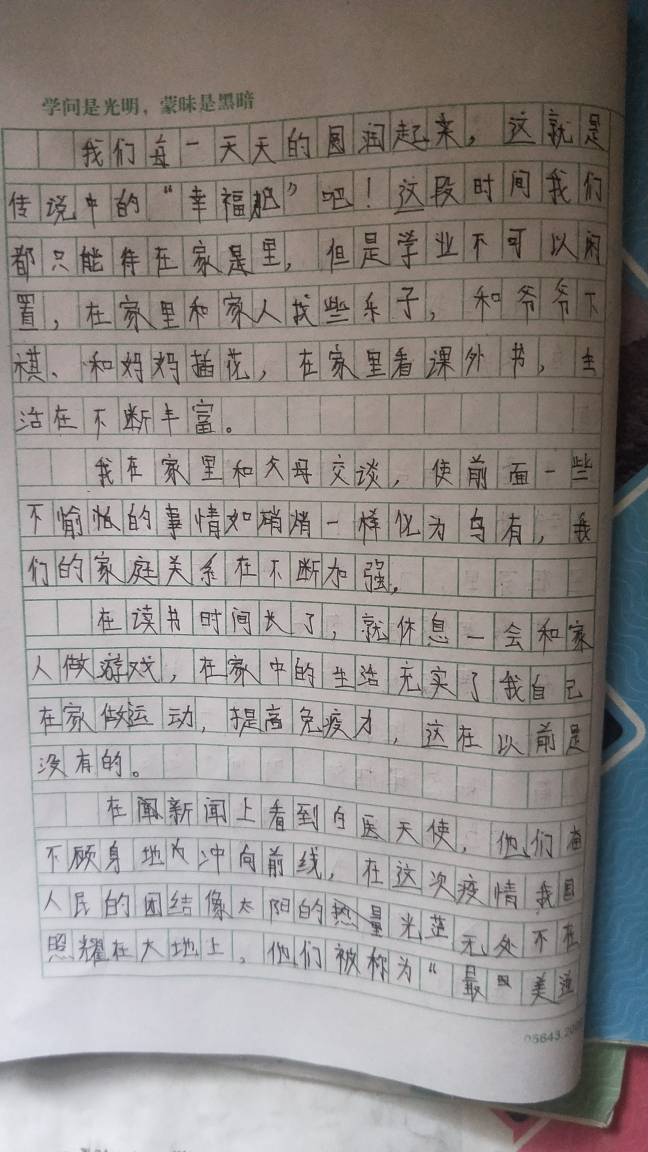 学问是光明，蒙昧是黑暗
我们每一天天的圆润起来，这就是
传说中的“幸福肥”吧！这段时间我们
都只能待在家是里，但是学业不可以闲
置，在家里和家人找些乐子，和爷爷下
棋、和妈妈插花，在家里看课外书，生
活在不断丰富。
我在家里和父母交谈，使前面一些
不愉恰的事情如硝烟一样化为乌有，我
们的家庭关系在不断加强。
在读书时间长了，就休息一会和家
人做游戏，在家中的生活充实了我自己
在家做运动，提高免疫力，这在以前是
没有的。
在闻新闻上看到白医天使，他们奋
不顾身地冲向前线，在这次疫情我国
人民的团结像太阳的热量光芒无处不在
照耀在大地上，他们被称为“最美逆
05643.200